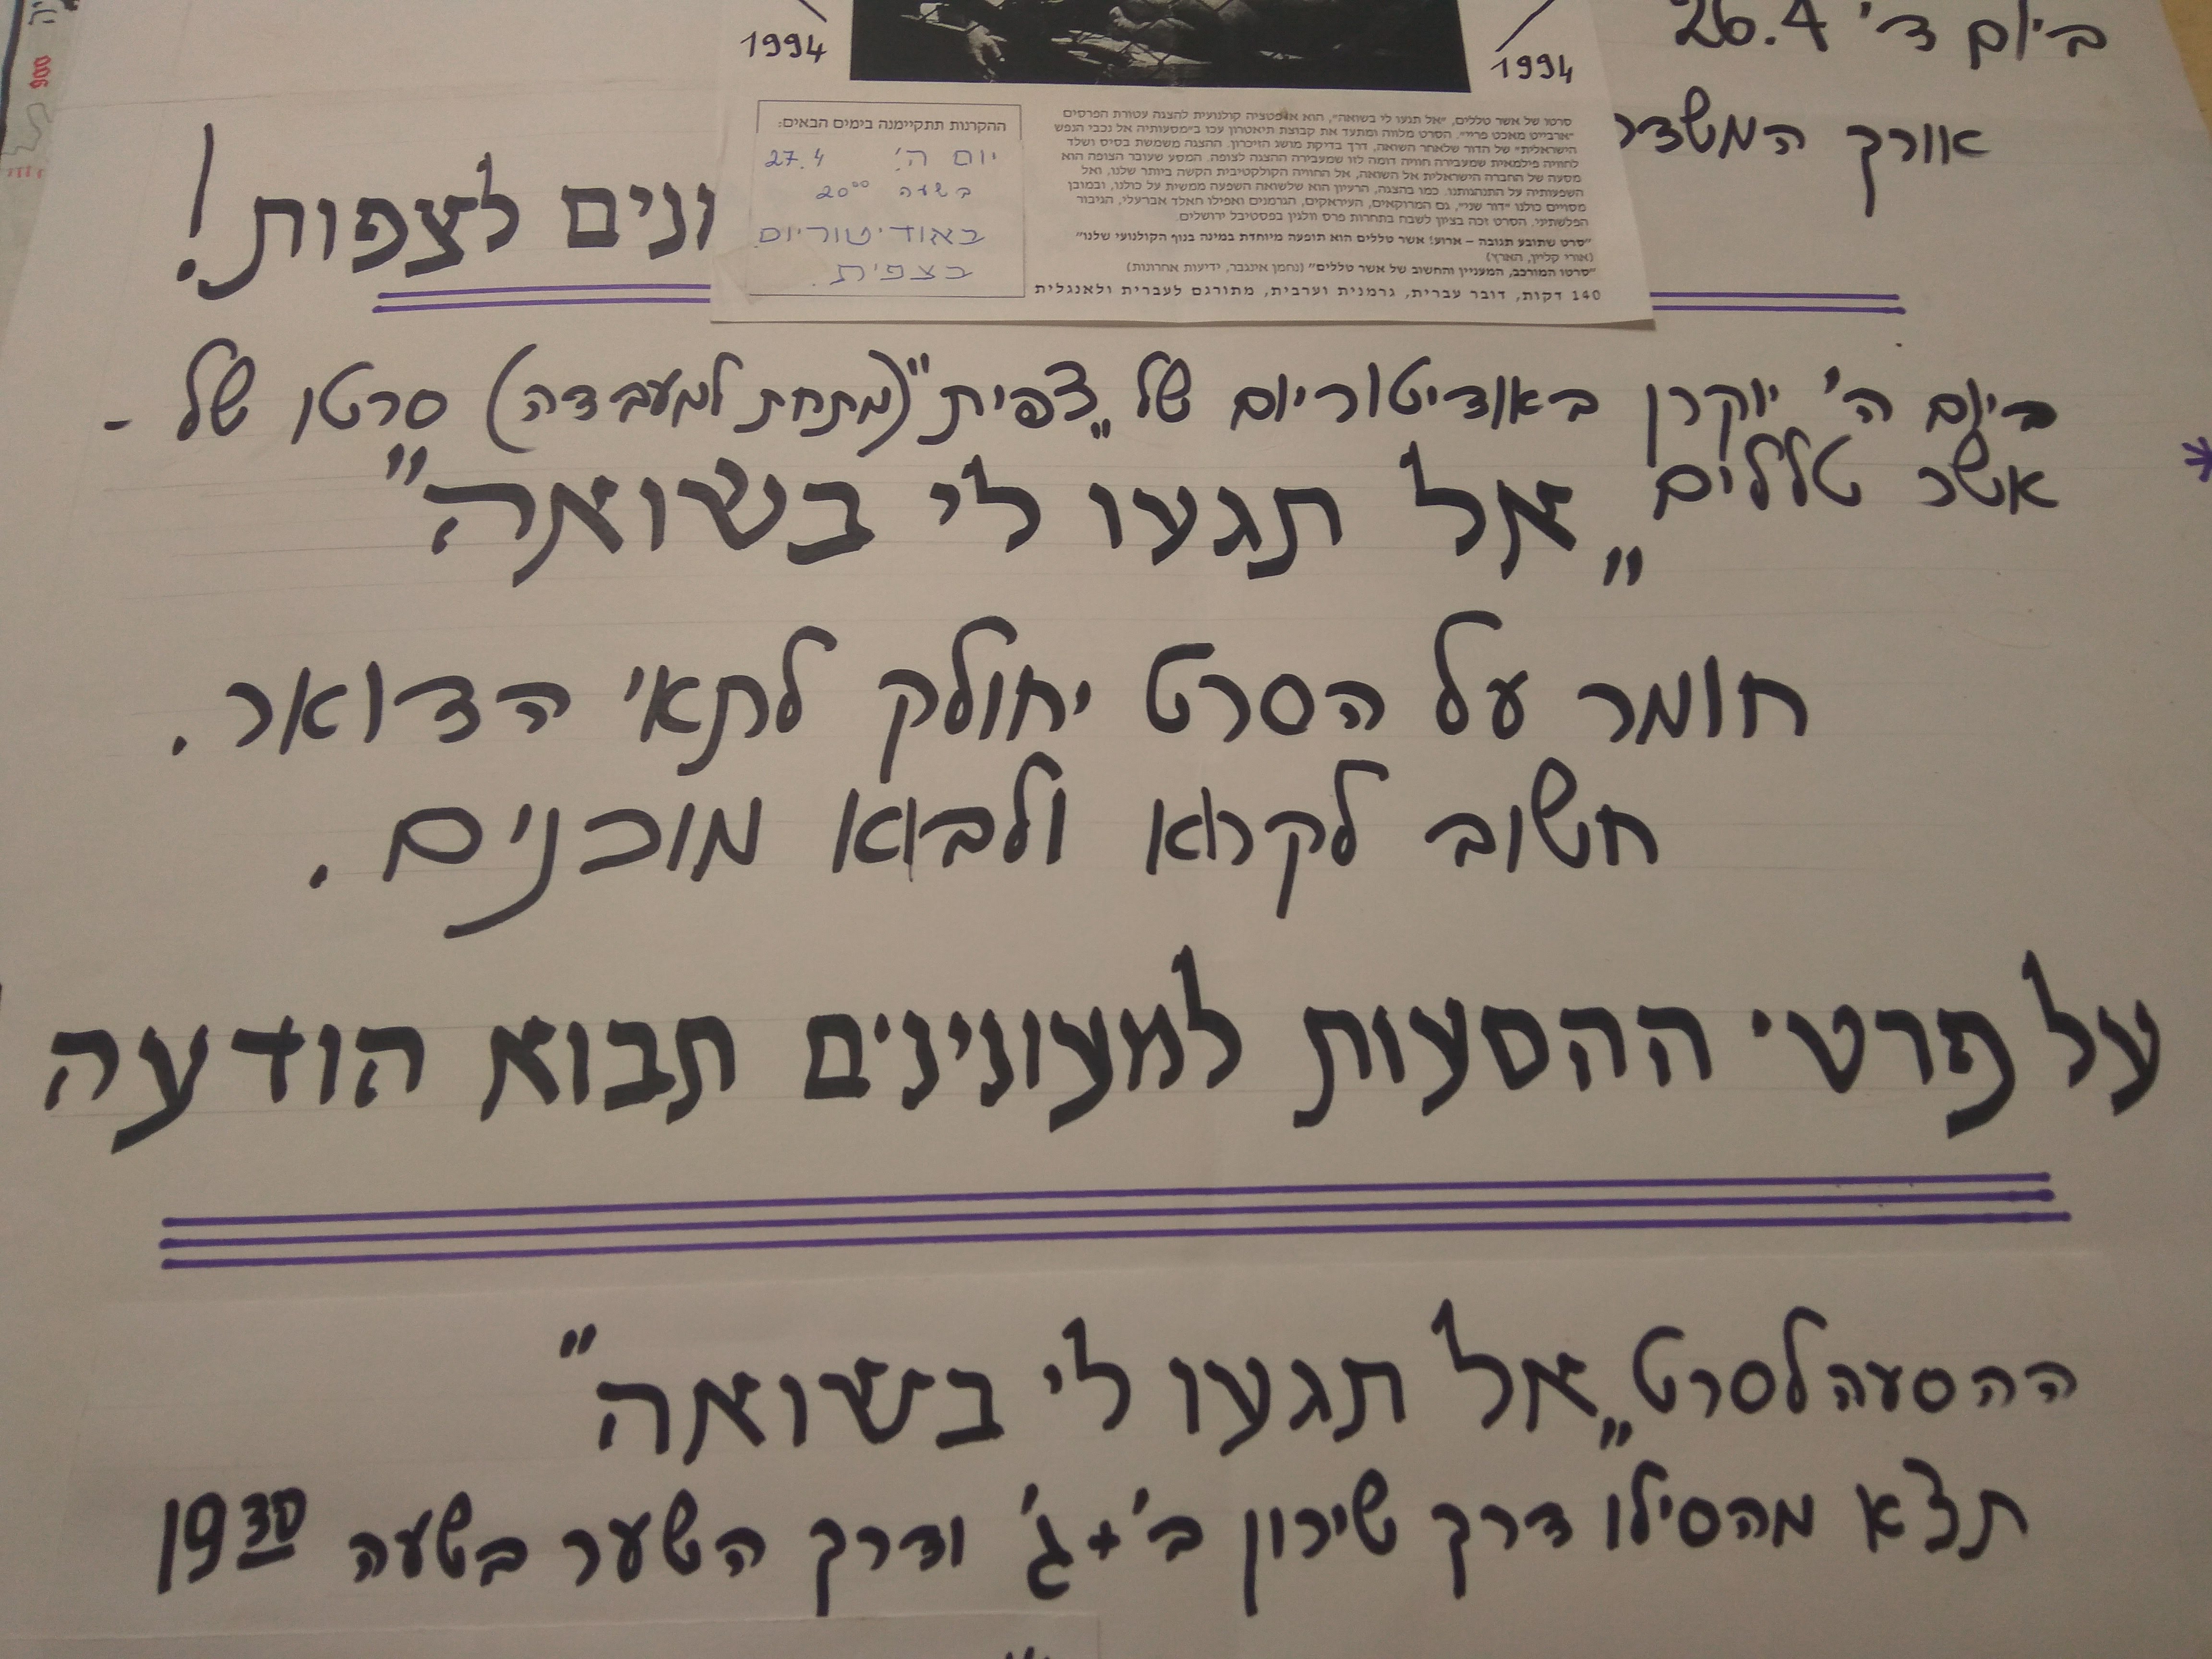 ביום ד' 26.4
1994
1994
אורך המשדר
ונים לצפות!
סרטו של אשר טללים, "אל תגעו לי בשואה", הוא אדפטציה קולנועית להצגה עטורת הפרסים
"ארבייט מאכט פריי". הסרט מלווה ומתעד את קבוצת תיאטרון עכו ב"מסעותיה אל נבכי הנפש
הישראלית" של הדור שלאחר השואה, דרך בדיקת מושג הזיכרון. ההצגה משמשת בסיס ושלד
לחוויה פילמאית שמעבירה חוויה דומה לזו שמעבירה ההצגה לצופה. המסע שעובר הצופה הוא
מסעה של החברה הישראלית אל השואה, אל החוויה הקולקטיבית הקשה ביותר שלנו, ואל
השפעותיה על התנהגותנו. כמו בהצגה, הרעיון הוא שלשואה השפעה ממשית על כולנו, ובמובן
מסויים כולנו "דור שני", גם המרוקאים, העיראקים, הגרמנים ואפילו חאלד אברעלי, הגיבור
הפלשתיני. הסרט זכה בציון לשבח בתחרות פרס וולגין בפסטיבל ירושלים.
"סרט שתובע תגובה – ארוע! אשר טללים הוא תופעה מיוחדת במינה בנוף הקולנועי שלנו"
(אורי קליין, הארץ)
"סרטו המורכב, המעניין והחשוב של אשר טללים" (נחמן אינגבר, ידיעות אחרונות)
140 דקות, דובר עברית, גרמנית וערבית, מתורגם לעברית ולאנגלית
ההקרנות תתקיימנה בימים הבאים:
יום ה'. 27.4
בשעה 20⁰⁰
באודיטוריום
בצפית.
ביום ה' יוקרן באודיטוריום של "צפית" (מתחת למעבדה) סרטו של -
אשר טללים "אל תגעו לי בשואה"
חומר על הסרט יחולק לתאי הדואר.
חשוב לקרוא ולבוא מוכנים.
על פרטי ההסעות למעונינים תבוא הודעה
ההסעה לסרט "אל תגעו לי בשואה"
תצא מהסילו דרך שיכון ב'+ג' ודרך השער בשעה 19³⁰